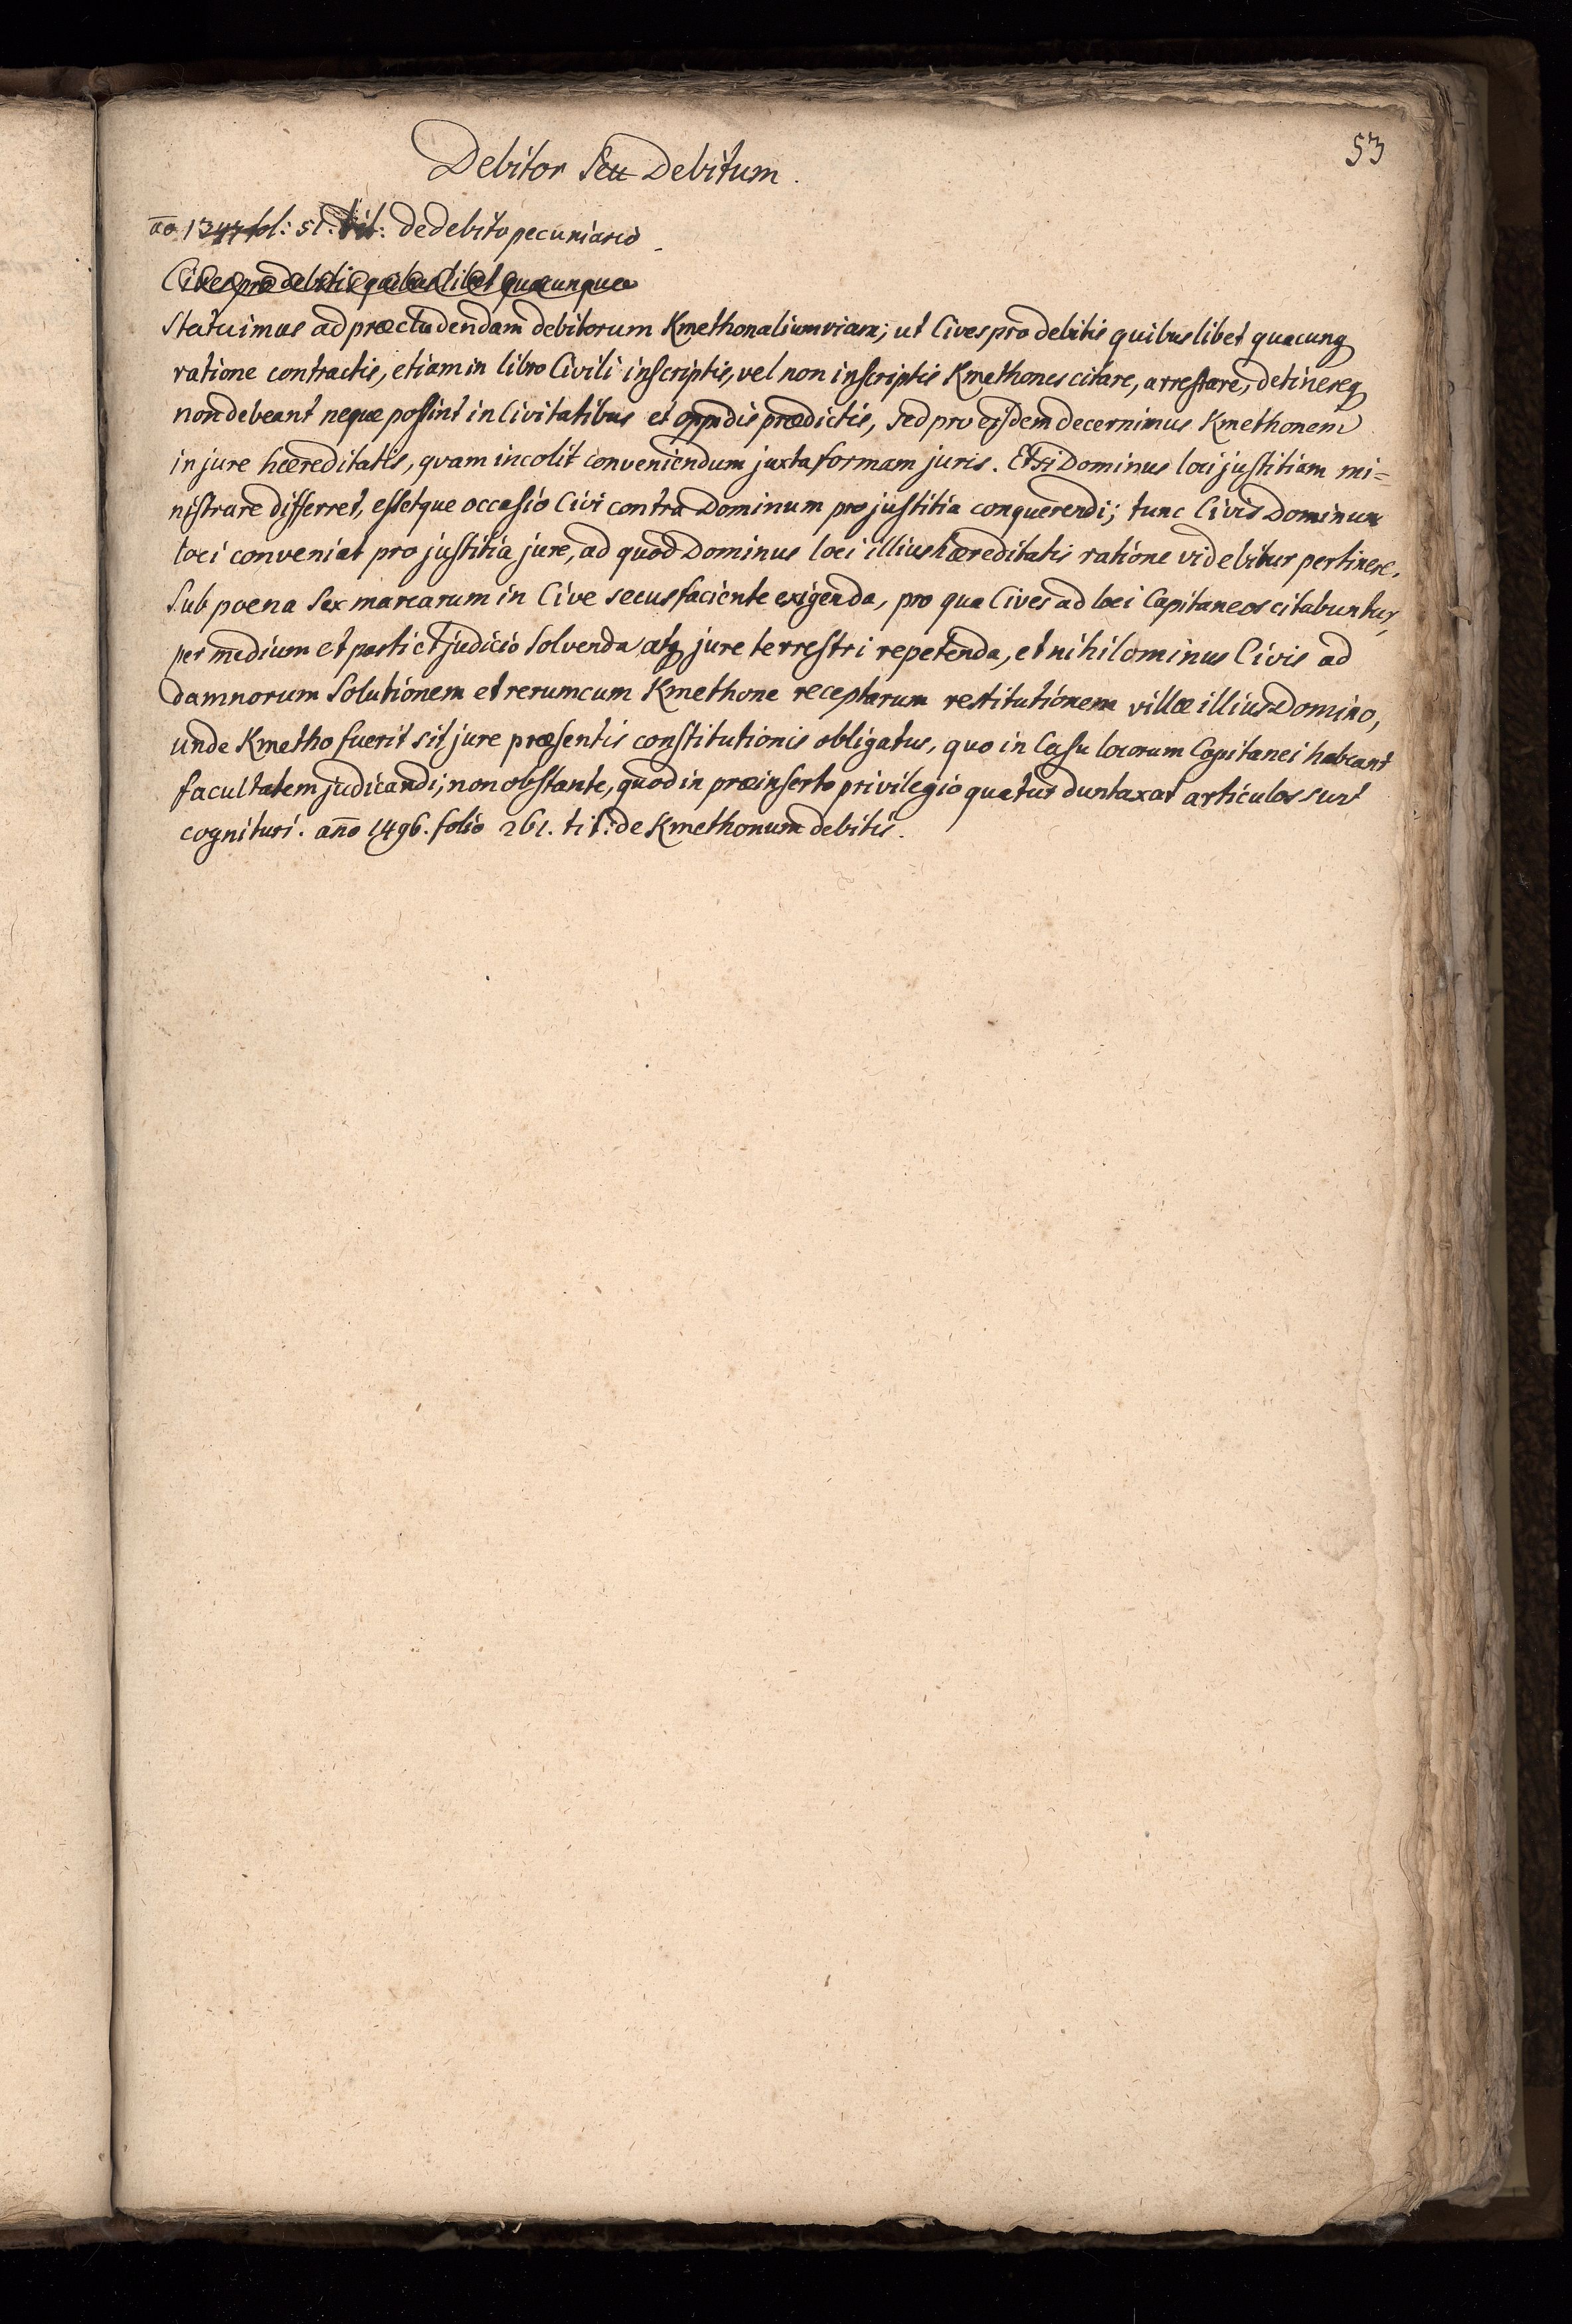 53
Debitor Seu Debitum.
ao 1347 fol: 51. tit: de debito pecuniario
Cives pro debitis quibuslibet quacunque
Statuimus ad præcludendam debitorum Kmethonalium viam; ut Cives pro debitis quibuslibet quacunq
ratione contractis, etiam in libro Civili inscriptis, vel non inscriptis Kmethones citare, arrestare, detinereq
non debeant neque possint in Civitatibus et oppidis prædictis, sed pro eisdem decernimus Kmethonem
in jure hæreditatis, quam incolit conveniendum juxta formam juris. Et si Dominus loci justitiam mi=
nistrare differret, essetque occasio Civi contra Dominum pro justitia conquerendi; tunc Civis Dominum
loci conveniat pro justitia jure, ad quod Dominus loci illius hæreditatis ratione videbitur pertinere.
Sub poena Sex marcarum in Cive secus faciente exigenda, pro qua Cives ad loci Capitaneos citabuntur,
per medium et parti et judicio solvenda atq jure terrestri repetenda, et nihilominus Civis ad
damnorum Solutionem et rerum cum Kmethone receptarum restitutionem villæ illius Domino,
unde Kmetho fuerit sit jure præsentis constitutionis obligatus, quo in Casu locorum Capitanei habeant
facultatem judicandi; non obstante, quod in præinserto privilegio quatuor duntaxat articulos sunt
cognituri. anno 1496. folio 261. tit: de Kmethonum debitis.